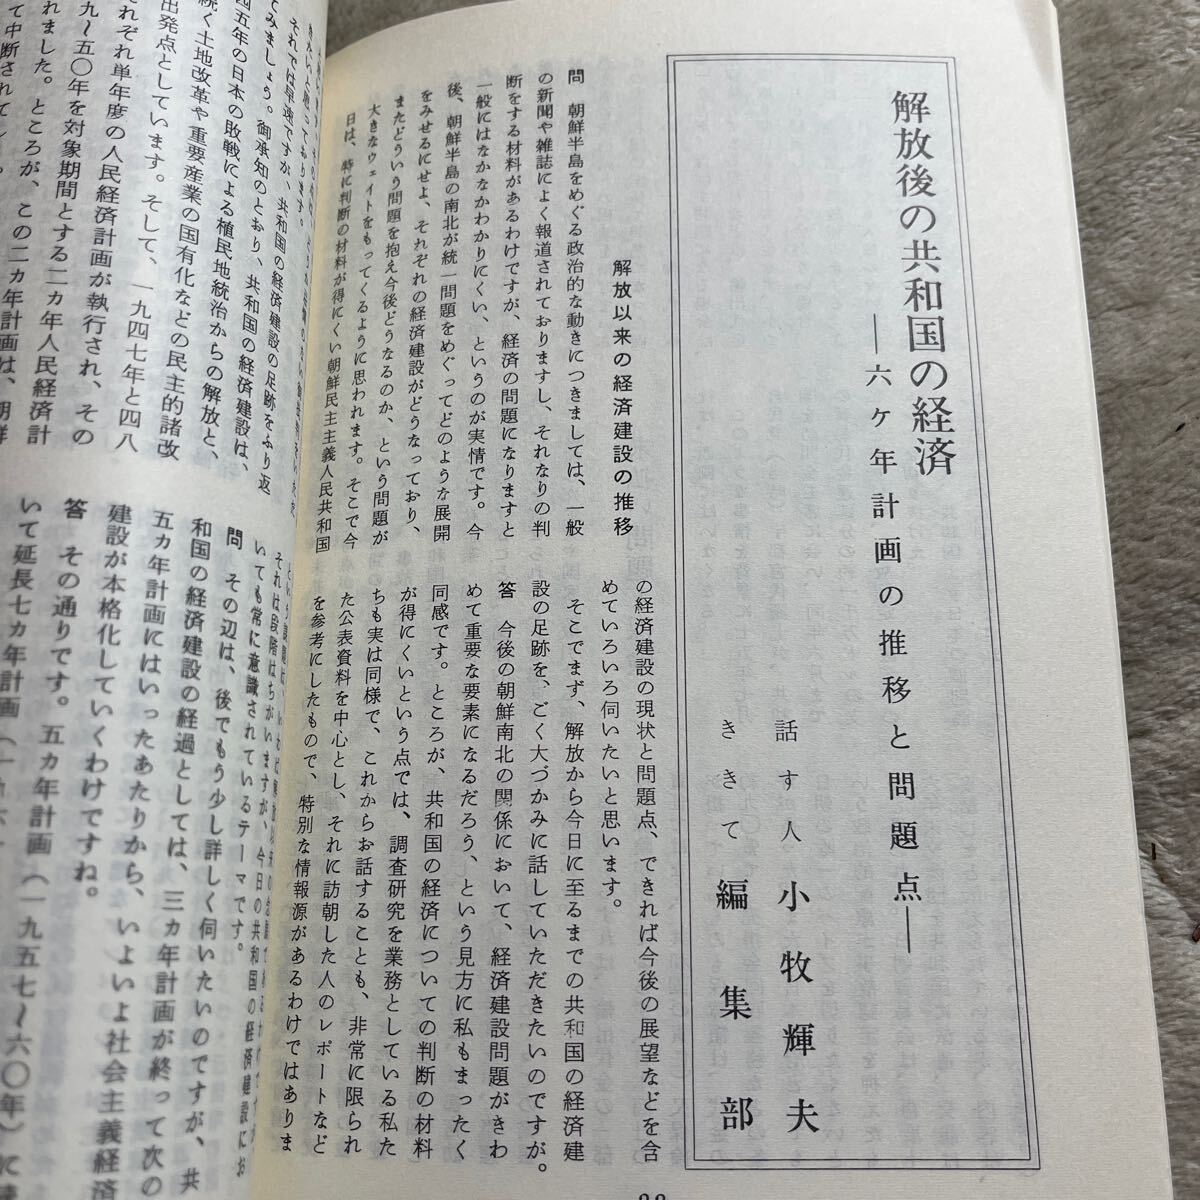 解放後の共和国の経済
―六ヶ年計画の推移と問題点―
話す人 小牧輝夫
ききて 編集部
解放以来の経済建設の推移
問 朝鮮半島をめぐる政治的な動きにつきましては、一般
の新聞や雑誌によく報道されておりますし、それなりの判
断をする材料があるわけですが、経済の問題になりますと
一般にはなかなかわかりにくい、というのが実情です。今
後、朝鮮半島の南北が統一問題をめぐってどのような展開
をみせるにせよ、それぞれの経済建設がどうなっており、
またどういう問題を抱え今後どうなるのか、という問題が
大きなウェイトをもってくるように思われます。そこで今
日は、特に判断の材料が得にくい朝鮮民主主義人民共和国
の経済建設の現状と問題点、できれば今後の展望などを含
めていろいろ伺いたいと思います。
そこでまず、解放から今日に至るまでの共和国の経済建
設の足跡を、ごく大づかみに話していただきたいのですが。
答 今後の朝鮮南北の関係において、経済建設問題がきわ
めて重要な要素になるだろう、という見方に私もまったく
同感です。ところが、共和国の経済についての判断の材料
が得にくいという点では、調査研究を業務としている私た
ちも実は同様で、これからお話することも、非常に限られ
た公表資料を中心とし、それに訪朝した人のレポートなど
を参考にしたもので、特別な情報源があるわけではありま
きたいと思っております。
それでは早速ですが、共和国の経済建設の足跡をふり返
てみましょう。御承知のとおり、共和国の経済建設は、
四五年の日本の敗戦による植民地統治からの解放と、
続く土地改革や重要産業の国有化などの民主的諸改
出発点としています。そして、一九四七年と四八
それぞれ単年度の人民経済計画が執行され、その
九〜五〇年を対象期間とする二ヵ年人民経済計
れました。ところが、この二ヵ年計画は、朝鮮
て中断されて
それは段階はちがいますが、今日の共和国の経済建設にお
いても常に意識されているテーマです。
問 その辺は、後でもう少し詳しく伺いたいのですが、共
和国の経済建設の経過としては、三ヵ年計画が終って次の
五ヵ年計画にはいったあたりから、いよいよ社会主義経済
建設が本格化していくわけですね。
答 その通りです。五ヵ年計画（一九五七〜六〇年）に
いて延長七ヵ年計画（一九六